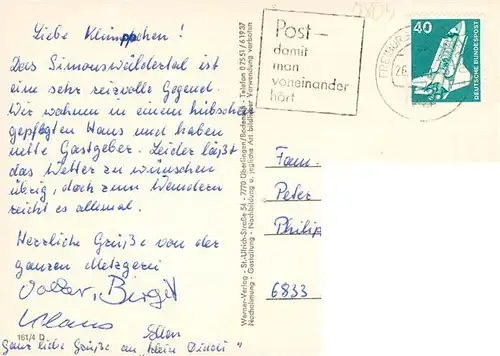 Liebe Klimppchen!
Das Simonswäldertal ist
eine sehr reizvolle Gegend.
Wir wohnen in einem hübschen
gepflegten Haus und haben
nette Gastgeber. Leider läßt
das Wetter zu wünschen
übrig, doch zum Wandern
reicht es allemal.
Herzliche Grüße von der
ganzen Metzgerei
Volker, Birgit
Klaus
Ellen
Ganz liebe Grüße an "klein
161/4 D
Werner-Verlag - St.-Ulrich-Straße 54 - 7770 Überlingen/Bodensee - Telefon 07551/61937
Nachahmung - Gestaltung - Nachbildung u. jegliche Art bildlicher Verwendung verboten
Post –
damit
man
voneinander
hört
40
DEUTSCHE BUNDESPOST
Fam.
Peter
Philip
6833